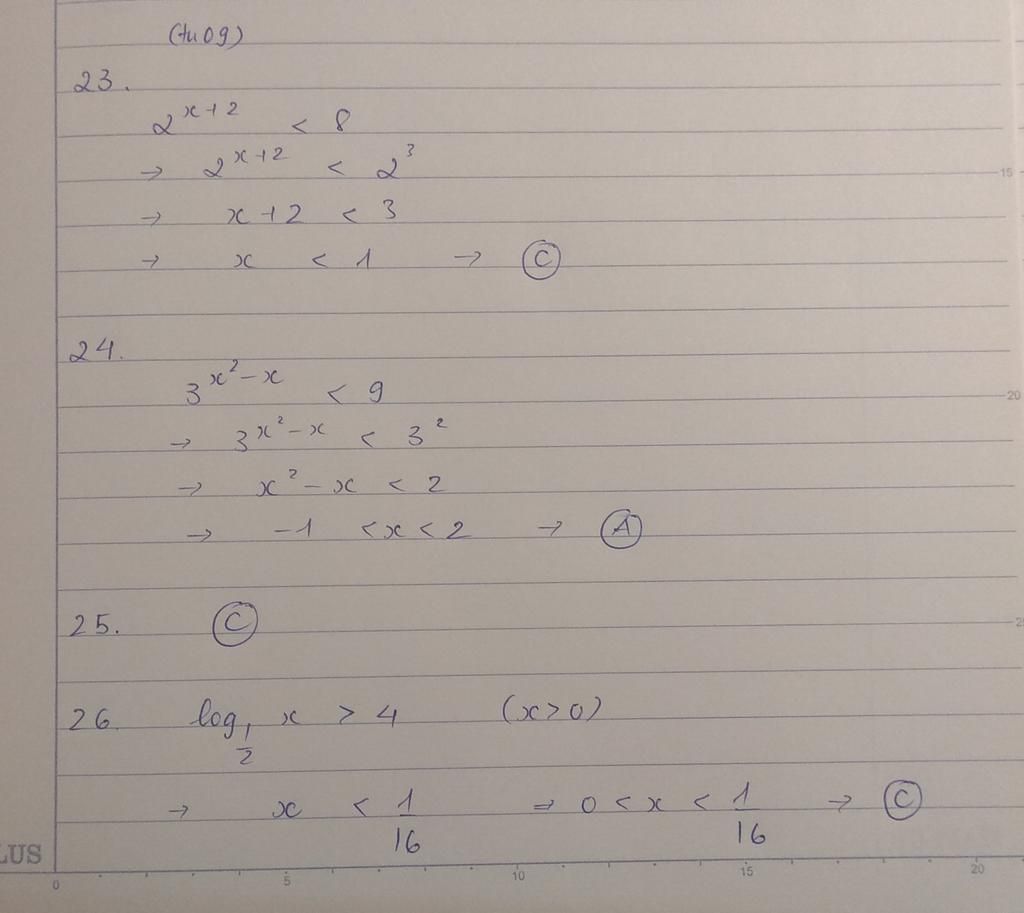 (tu09)
23.
2^{x+2} < 8
→ 2^{x+2} < 2^3
→ x+2 < 3
→ x < 1 → Ⓒ
24.
3^{x^2-x} < 9
→ 3^{x^2-x} < 3^2
→ x^2-x < 2
→ -1 < x < 2 → Ⓐ
25. Ⓒ
26. log_{1/2} x > 4 (x>0)
→ x < 1/16 → 0 < x < 1/16 → Ⓒ
LUS
0 5 10 15 20
15
20